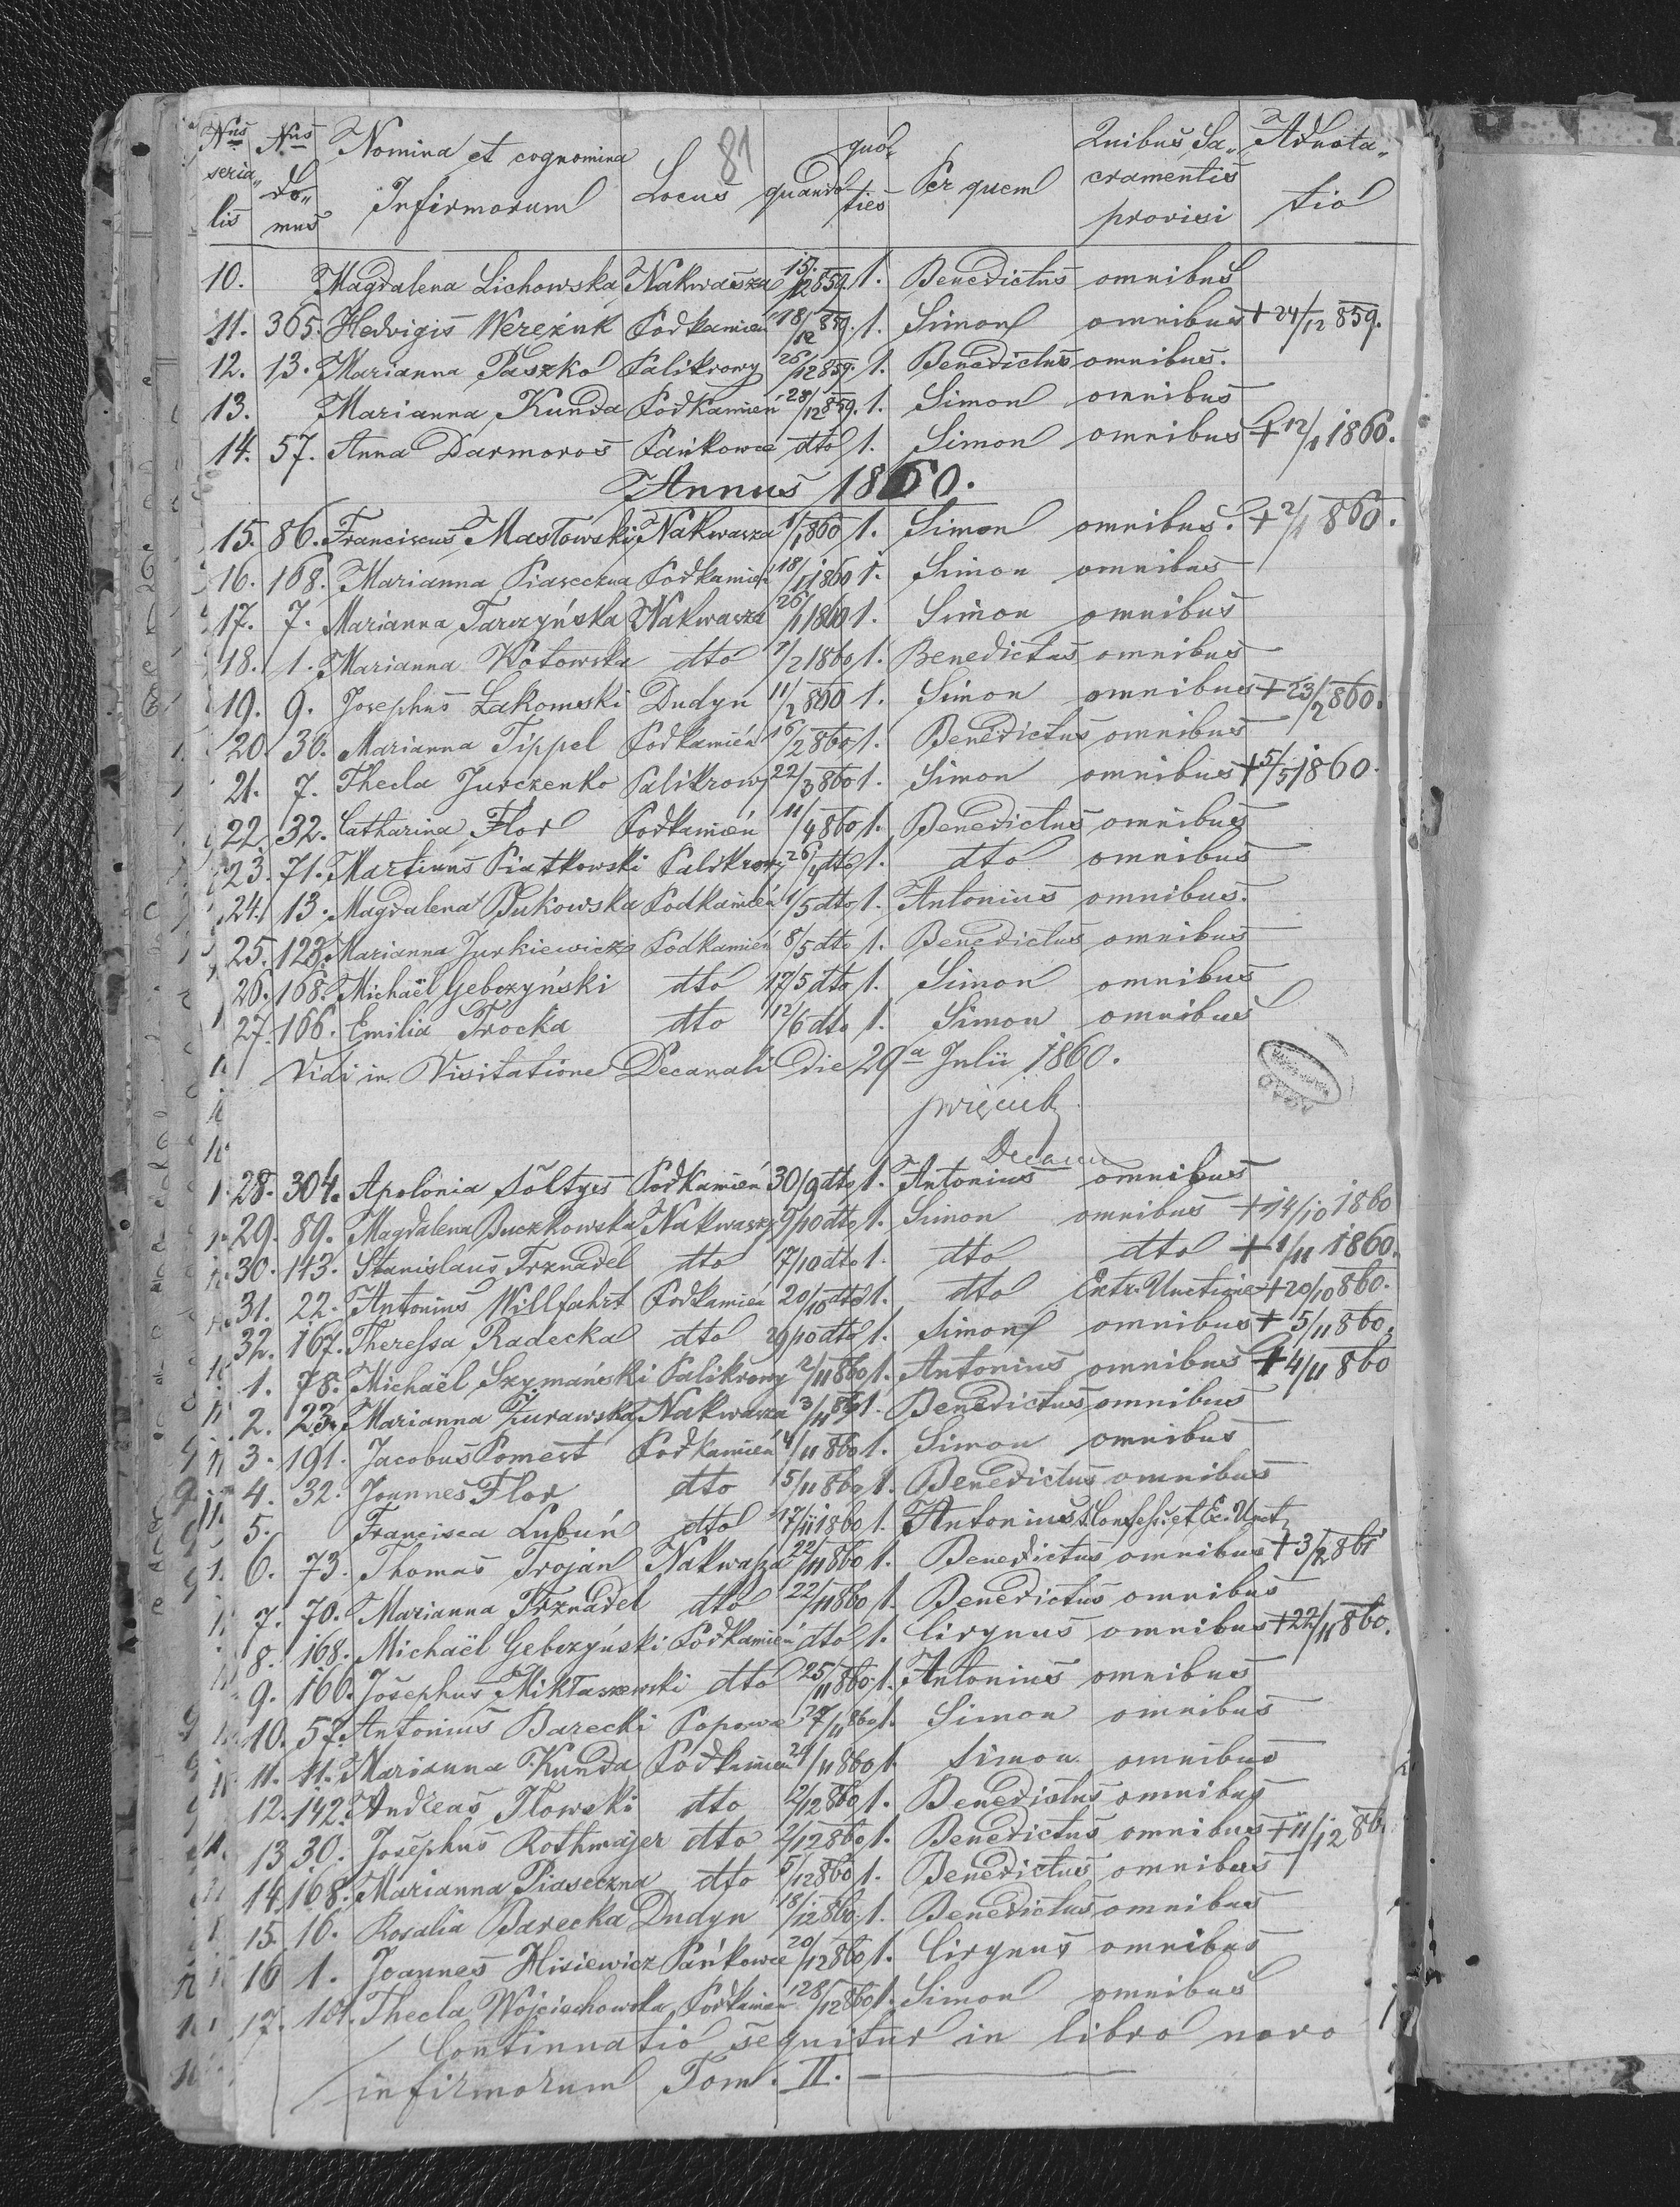 81
Nus serialis | Nus Domus | Nomina et cognomina Infirmorum | Locus | quando | quoties | Per quem | Quibus Sacramentis provisi | Adnotatio
10. Magdalena Lichowska Nakwasza 15/12 859. 1. Benedictus omnibus
11. 365. Hedvigis Wereżuk Podkamień 18/12 859. 1. Simon omnibus + 24/12 859.
12. 13. Marianna Paszko Palikrowy 26/12 859. 1. Benedictus omnibus.
13. Marianna Kunda Podkamień 28/12 859. 1. Simon omnibus
14. 57. Anna Darmoros Pańkowce dto 1. Simon omnibus + 12/1 1860.
Annus 1860.
15. 86. Franciscus Masłowski Nakwasza 1/1 860 1. Simon omnibus. + 2/1 860.
16. 168. Marianna Piaseczna Podkamień 18/1 1860 1. Simon omnibus
17. 7. Marianna Tarczyńska Nakwasza 26/1 1860 1. Simon omnibus
18. 1. Marianna Kotowska dto 7/2 1860 1. Benedictus omnibus
19. 9. Josephus Łakomski Dudyn 11/2 860 1. Simon omnibus + 23/2 860.
20. 30. Marianna Tippel Podkamień 16/2 860 1. Benedictus omnibus
21. 7. Thecla Jurczenko Palikrowy 22/3 860 1. Simon omnibus + 5/5 1860.
22. 32. Catharina Flor Podkamień 11/4 860 1. Benedictus omnibus
23. 71. Martinus Piatkowski Palikrowy 26/4 dto 1. dto omnibus
24. 13. Magdalena Bukowska Podkamień 1/5 dto 1. Antonius omnibus.
25. 123. Marianna Jurkiewicz Podkamień 8/5 dto 1. Benedictus omnibus
26. 168. Michaël Gebczyński dto 17/5 dto 1. Simon omnibus
27. 166. Emilia Trocka dto 12/6 dto 1. Simon omnibus
Vidi in Visitatione Decanali Die 29a Julii 1860.
Decanus
28. 304. Apolonia Sołtys Podkamień 30/9 dto 1. Antonius omnibus
29. 89. Magdalena Buczkowska Nakwasza 9/10 dto 1. Simon omnibus + 14/10 1860
30. 143. Stanislaus Trznadel dto 17/10 dto 1. dto dto + 1/11 1860.
31. 22. Antonius Willfahrt Podkamień 20/10 dto 1. dto Extr. Unctione + 20/10 860.
32. 167. Theressa Radecka dto 29/10 dto 1. Simon omnibus + 5/11 860.
1. 78. Michaël Szymański Palikrowy 2/11 860 1. Antonius omnibus + 4/11 860
2. 23. Marianna Żurawska Nakwasza 3/11 860 1. Benedictus omnibus
3. 191. Jacobus Pomest Podkamień 4/11 860 1. Simon omnibus
4. 32. Joannes Flor dto 5/11 860 1. Benedictus omnibus
5. Francisca Lubuń dto 17/11 1860 1. Antonius Confess. et Ex. Unct
6. 73. Thomas Trojan Nakwasza 22/11 860 1. Benedictus omnibus + 3/2 861
7. 70. Marianna Trznadel dto 22/11 860 1. Benedictus omnibus
8. 168. Michaël Gebczyński Podkamień dto 1. Cirynus omnibus + 22/11 860.
9. 166. Josephus Mikłaszewski dto 25/11 860 1. Antonius omnibus
10. 57. Antonius Barecki Popowce 27/11 860 1. Simon omnibus
11. 11. Marianna Kunda Podkamień 29/11 860 1. Simon omnibus
12. 142. Andreas Iłowski dto 2/12 860 1. Benedictus omnibus
13 30. Josephus Rothmajer dto 2/12 860 1. Benedictus omnibus + 11/12 86
14. 168. Marianna Piaseczna dto 5/12 860 1. Benedictus omnibus
15. 16. Rosalia Barecka Dudyn 18/12 860. 1. Benedictus omnibus
16 1. Joannes Hisiewicz Pańkowce 20/12 860 1. Cirynus omnibus
17. 101. Thecla Wojciechowska Podkamień 28/12 860 1. Simon omnibus
Continuatio sequitur in libro novo
infirmorum Tom. II.